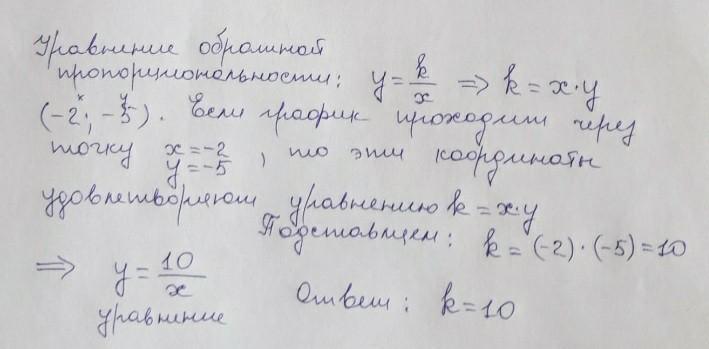 Уравнение обратной
пропорциональности: y = k/x ⇒ k = x·y
(-2; -5). Если график проходит через
x y
точку x = -2
y = -5 , то эти координаты
удовлетворяют уравнению k = x·y
Подставщем: k = (-2)·(-5) = 10
⇒ y = 10/x
уравнение
Ответ: k = 10